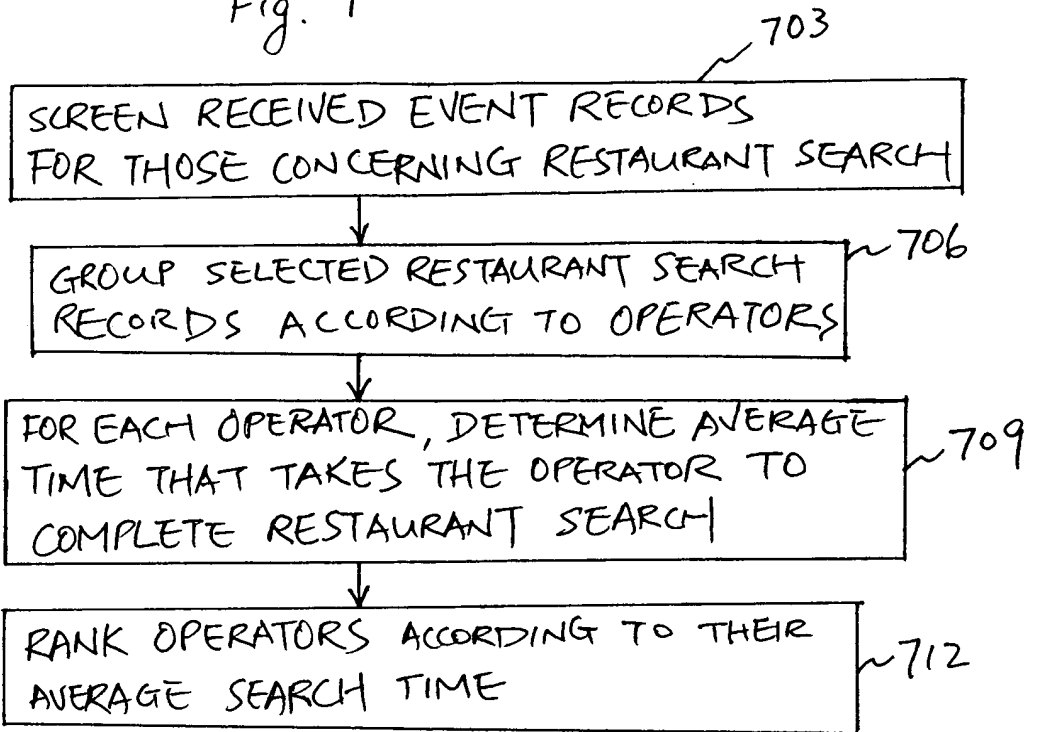 Fig.
703
SCREEN RECEIVED EVENT RECORDS
FOR THOSE CONCERNING RESTAURANT SEARCH
706
GROUP SELECTED RESTAURANT SEARCH
RECORDS ACCORDING TO OPERATORS
FOR EACH OPERATOR, DETERMINE AVERAGE
TIME THAT TAKES THE OPERATOR TO
COMPLETE RESTAURANT SEARCH
709
RANK OPERATORS ACCORDING TO THEIR
AVERAGE SEARCH TIME
712